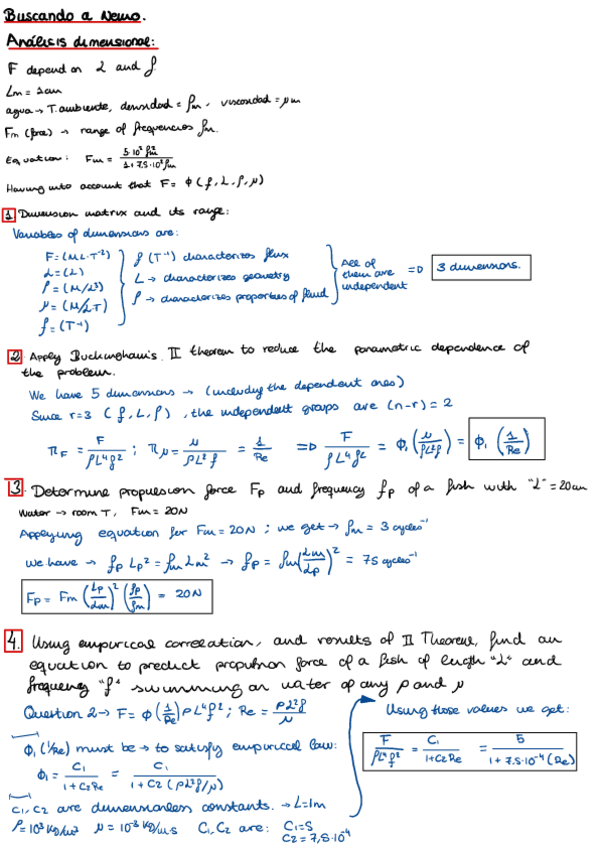 Buscando a Nemo.
Análisis dimensional:
F depend on L and f.
Lm = 1cm
agua → T.ambiente, densidad = ρm, viscosidad = μm
Fm (force) → range of frequencies fm.
Equation: Fm = 5·10² fm² / 1+7,5·10² fm
Having into account that F = Φ (f, L, ρ, μ)
1. Dimension matrix and its range:
Variables of dimensions are:
F = (M L · T⁻²)
L = (L)
ρ = (M/L³)
μ = (M/LT)
f = (T⁻¹)
f (T⁻¹) characterizes flux
L → characterizes geometry
ρ → characterizes properties of fluid
All of them are independent => 3 dimensions.
2. Apply Buckingham's Π theorem to reduce the parametric dependence of
the problem.
We have 5 dimensions → (including the dependent ones)
Since r=3 (f, L, ρ), the independent groups are (n-r) = 2
π_F = F / ρL⁴f² ; π_μ = μ / ρL²f = 1/Re => F / ρL⁴f² = Φ₁ (μ / ρL²f) = Φ₁ (1/Re)
3. Determine propulsion force Fp and frequency fp of a fish with "L" = 20cm
Water → room T, Fm = 20N
Applying equation for Fm = 20N ; we get → fm = 3 cycles⁻¹
We have → fp Lp² = fm Lm² → fp = fm (Lm/Lp)² = 75 cycles⁻¹
Fp = Fm (Lp/Lm)² (fp/fm) = 20N
4. Using empirical correlation, and results of Π Theorem, find an
equation to predict propulsion force of a fish of length "L" and
frequency "f" swimming on water of any ρ and μ
Question 2 → F = Φ (1/Re) ρL⁴f² ; Re = ρL²f / μ
Φ₁ (1/Re) must be → to satisfy empirical law:
Φ₁ = C₁ / 1+C₂Re = C₁ / 1+C₂ (ρL²f/μ)
C₁, C₂ are dimensionless constants. → L=1m
ρ = 10³ kg/m³ μ = 10⁻³ kg/m·s C₁, C₂ are: C₁=5
C₂ = 7,5·10⁻⁴
Using those values we get:
F / ρL⁴f² = C₁ / 1+C₂Re = 5 / 1+7.5·10⁻⁴ (Re)